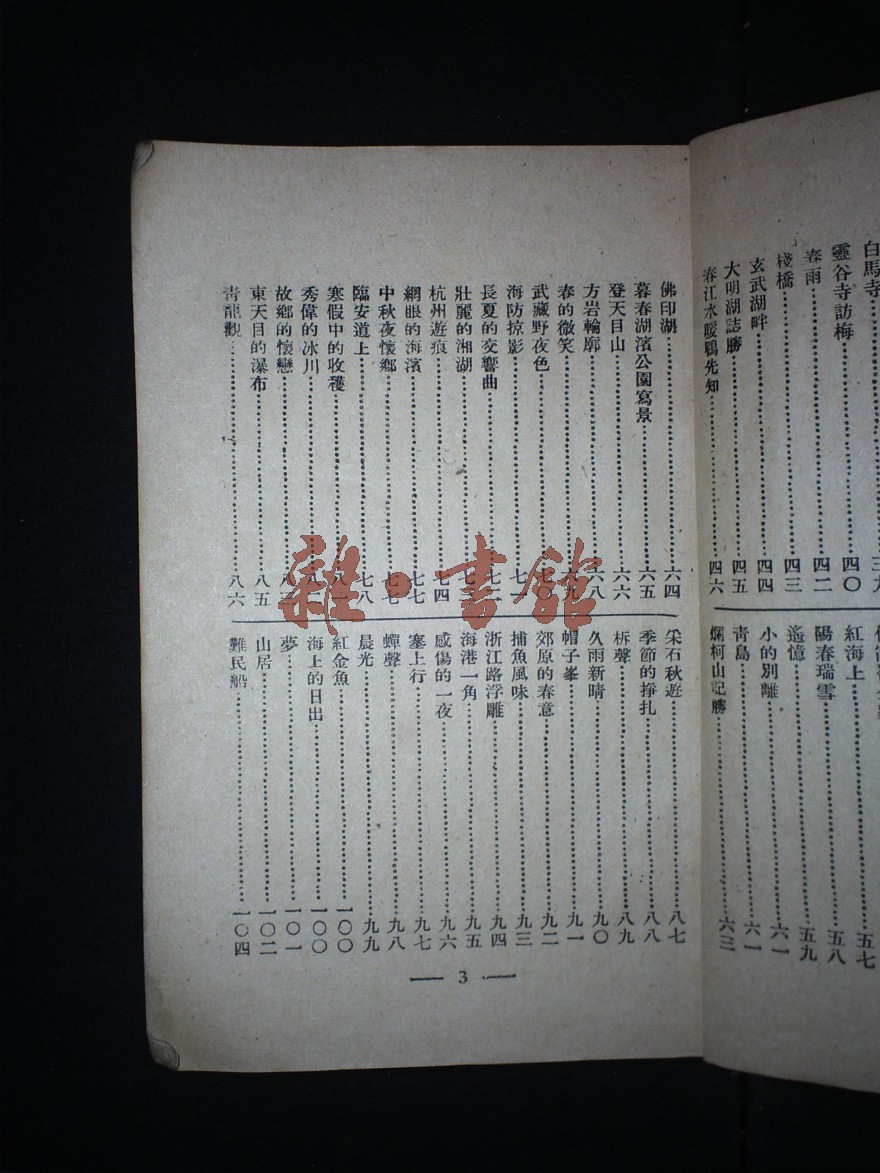 白馬寺……三九
靈谷寺訪梅……四〇
春雨……四二
棧橋……四三
玄武湖畔……四四
大明湖誌勝……四五
春江水暖鴨先知……四六
紅海上……五八
陽春瑞雪……五九
遙憶……六一
小的別離……六一
靑島
爛柯山記勝……六三
佛印湖……六四
暮春湖濱公園寫景……六五
登天目山……六六
方岩輪廓……六八
春的微笑……六九
武藏野夜色……七〇
海防掠影……七一
長夏的交響曲……七二
壯麗的湘湖
杭州遊痕……七四
網眼的海濱……七七
中秋夜懷鄉……七七
臨安道上……七八
寒假中的收穫……八一
秀偉的冰川
故鄉的懷戀
東天目的瀑布……八五
靑龍觀……八六
采石秋遊……八七
季節的掙扎……八八
柝聲……八九
久雨新晴……九〇
帽子峯……九一
郊原的春意……九二
捕魚風味……九三
浙江路浮雕……九四
海港一角……九五
感傷的一夜……九六
塞上行……九七
蟬聲……九八
晨光……九九
紅金魚……一〇〇
海上的日出……一〇〇
夢……一〇一
山居……一〇二
難民船……一〇四
— 3 —
雜·書館